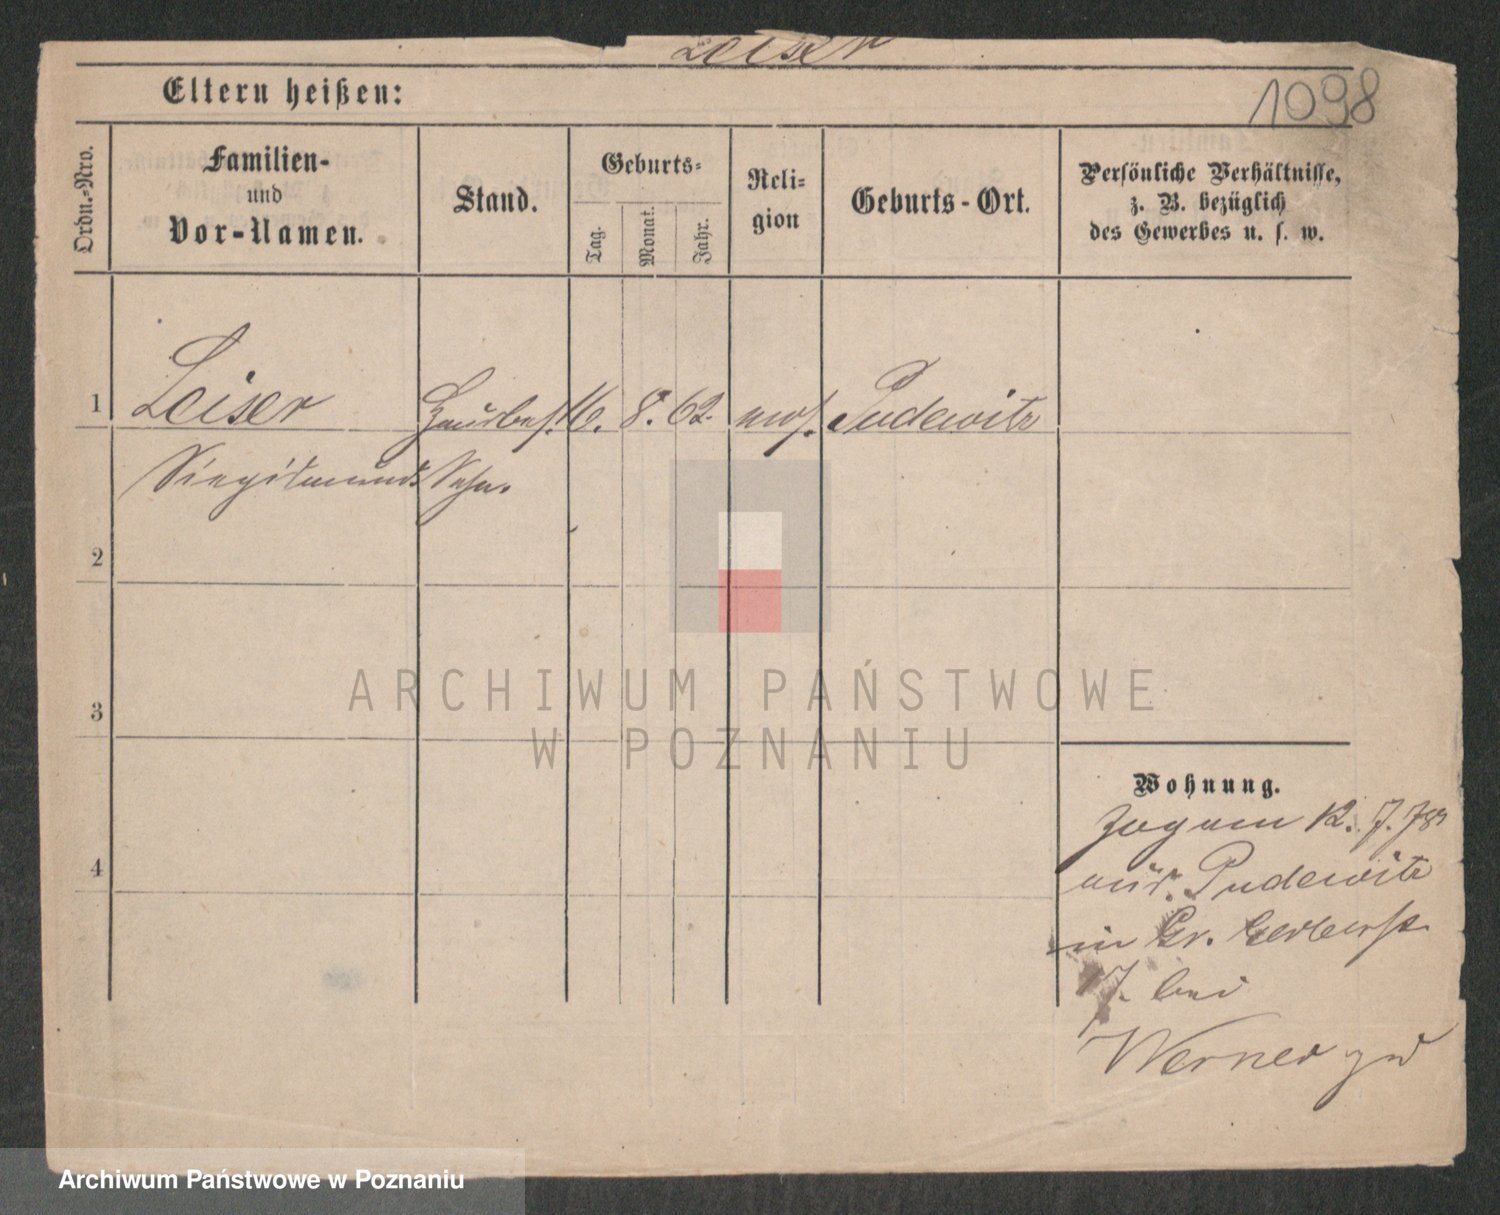 Leiser
Eltern heißen:
1098
Ordn.-Nro.
Familien-
und
Vor-Namen.
Stand.
Geburts-
Tag.
Monat.
Jahr.
Reli-
gion
Geburts-Ort.
Persönliche Verhältnisse,
z. B. bezüglich
des Gewerbes u. s. w.
1 Leiser Hausbes. 16. 8. 62. mos. Pudewitz
Siegismund Sohn.
2
3
4
ARCHIWUM PAŃSTWOWE
W POZNANIU
Wohnung.
Zog am 12. 7. 78
aus Pudewitz
in Gr. Gerberst.
7. bei
Werner zu
Archiwum Państwowe w Poznaniu